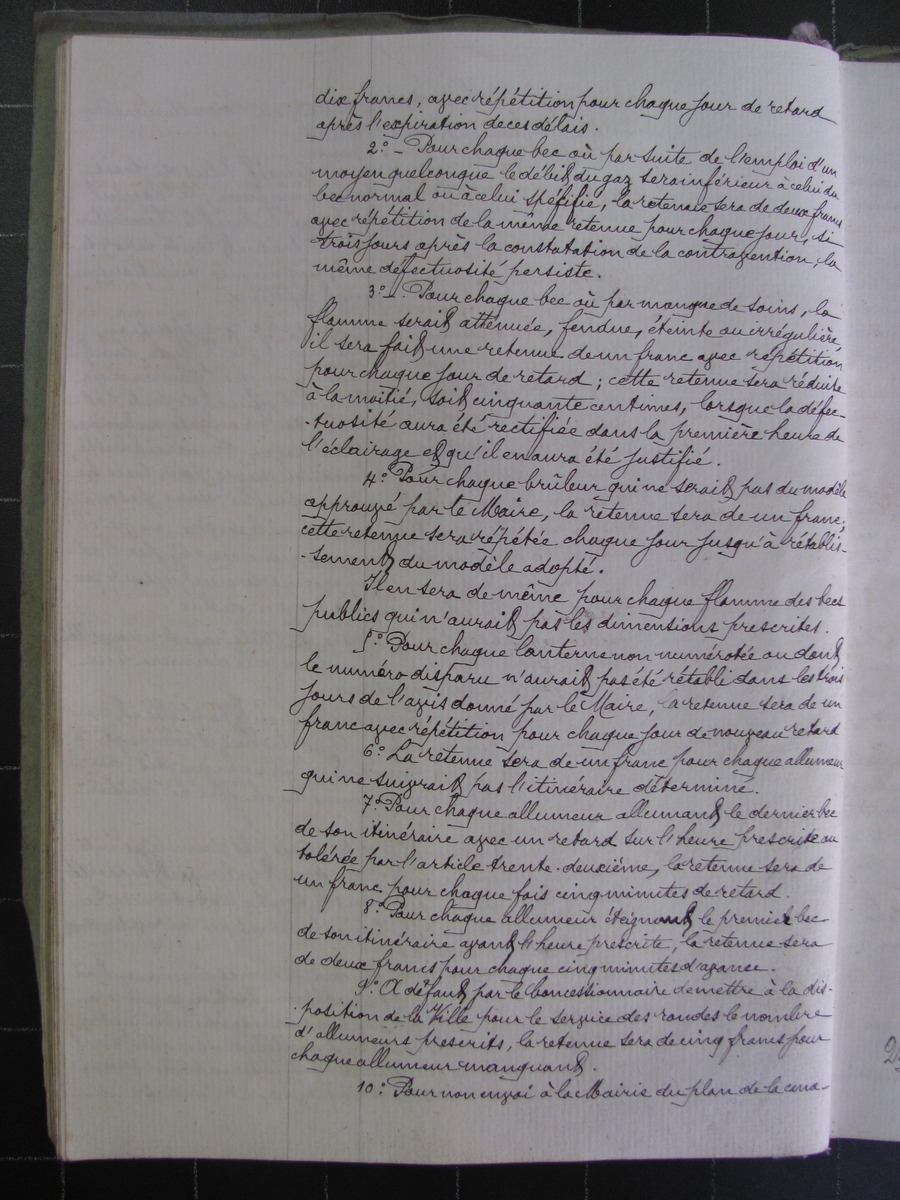 dix francs, avec répétition pour chaque jour de retard
après l'expiration de ces délais.
2° - Pour chaque bec où par suite de l'emploi d'un
moyen quelconque le débit du gaz sera inférieur à celui du
bec normal ou à celui spécifié, la retenue sera de deux francs
avec répétition de la même retenue pour chaque jour, si
trois jours après la constatation de la contravention, la
même défectuosité persiste.
3° - Pour chaque bec où par manque de soins, la
flamme serait attenuée, fendue, éteinte ou irrégulière,
il sera fait une retenue de un franc avec répétition
pour chaque jour de retard ; cette retenue sera réduite
à la moitié, soit cinquante centimes, lorsque la défec-
-tuosité aura été rectifiée dans la première heure de
l'éclairage et qu'il en aura été justifié.
4° Pour chaque brûleur qui ne serait pas du modèle
approuvé par le Maire, la retenue sera de un franc ;
cette retenue sera répétée chaque jour jusqu'à rétablis-
-sement du modèle adopté.
Il en sera de même pour chaque flamme des becs
publics qui n'aurait pas les dimensions prescrites.
5° Pour chaque lanterne non numérotée ou dont
le numéro disparu n'aurait pas été rétabli dans les trois
jours de l'avis donné par le Maire, la retenue sera de un
franc avec répétition pour chaque jour de nouveau retard
6° La retenue sera de un franc pour chaque allumeur
qui ne suivrait pas l'itinéraire déterminé.
7° Pour chaque allumeur allumant le dernier bec
de son itinéraire avec un retard sur l'heure prescrite ou
tolérée par l'article trente-deuxième, la retenue sera de
un franc pour chaque fois cinq minutes de retard.
8° Pour chaque allumeur éteignant le premier bec
de son itinéraire avant l'heure prescrite, la retenue sera
de deux francs pour chaque cinq minutes d'avance.
9° A défaut par le Concessionnaire de mettre à la dis-
-position de la Ville pour le service des rondes le nombre
d'allumeurs prescrits, la retenue sera de cinq francs pour
chaque allumeur manquant.
10° Pour non envoi à la Mairie du plan de la cana-